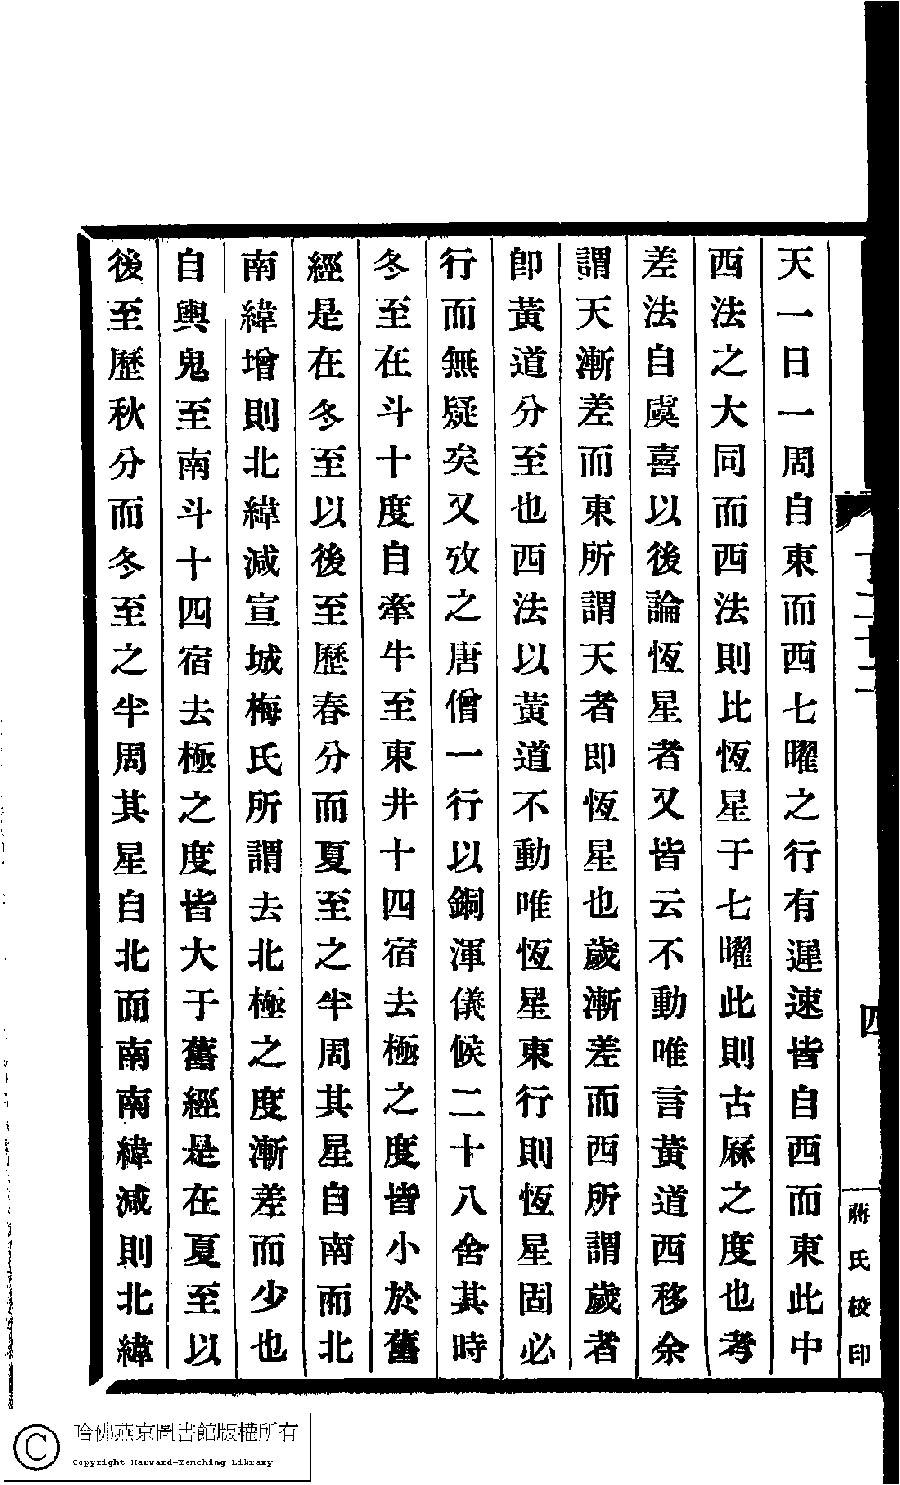 天一日一周自東而西七曜之行有遲速皆自西而東此中
西法之大同而西法則比恆星于七曜此則古厤之度也考
差法自虞喜以後論恆星者又皆云不動唯言黃道西移余
謂天漸差而東所謂天者即恆星也歲漸差而西所謂歲者
卽黃道分至也西法以黃道不動唯恆星東行則恆星固必
行而無疑矣又攷之唐僧一行以銅渾儀候二十八舍其時
冬至在斗十度自牽牛至東井十四宿去極之度皆小於舊
經是在冬至以後至歷春分而夏至之半周其星自南而北
南緯增則北緯減宣城梅氏所謂去北極之度漸差而少也
自輿鬼至南斗十四宿去極之度皆大于舊經是在夏至以
後至歷秋分而冬至之半周其星自北而南南緯減則北緯
四
蔣氏校印
哈佛燕京圖書館版權所有
Copyright Harvard-Yenching Library